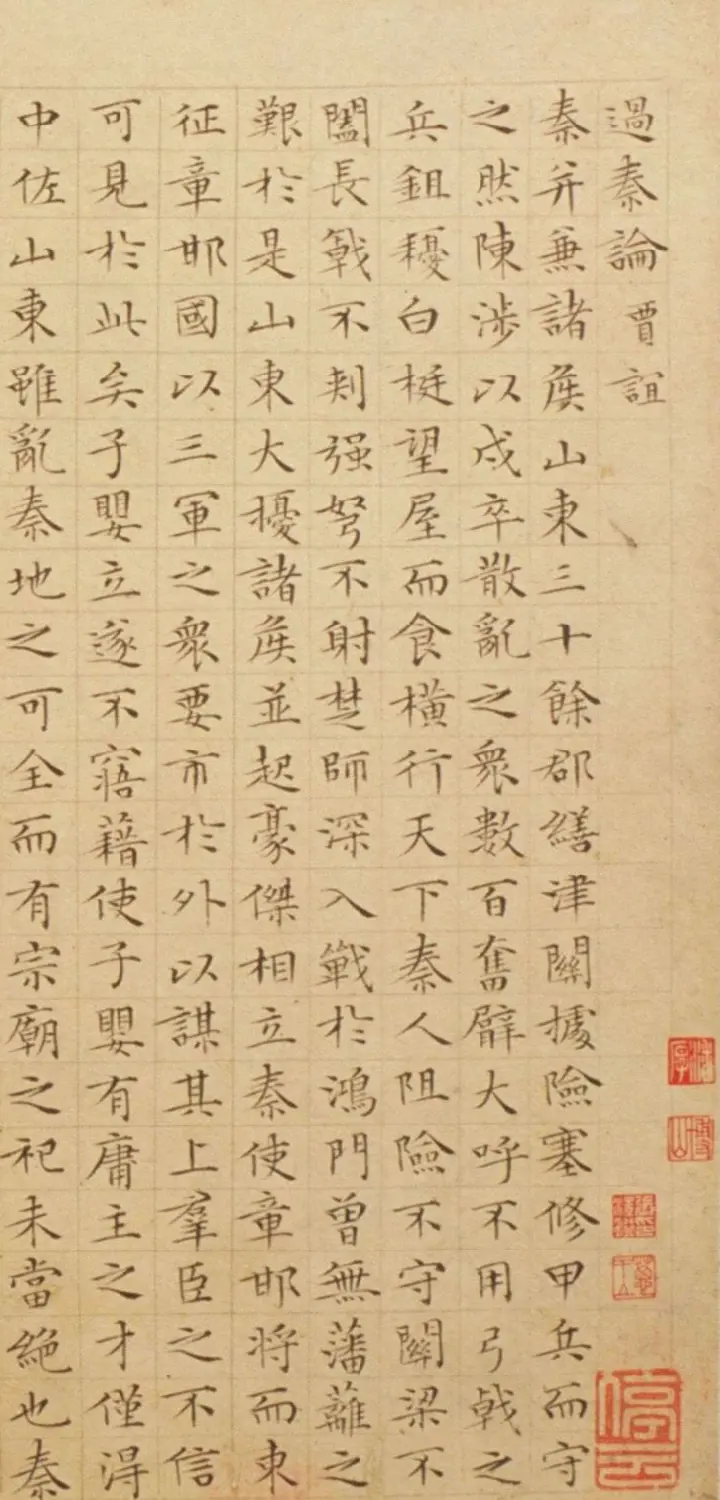 過秦論 賈誼
秦并兼諸矦山東三十餘郡繕津關據險塞修甲兵而守
之然陳涉以戍卒散亂之衆數百奮臂大呼不用弓戟之
兵鉏耰白梃望屋而食橫行天下秦人阻險不守關梁不
闔長戟不刺强弩不射楚師深入戰於鴻門曾無藩蘺之
艱於是山東大擾諸矦並起豪傑相立秦使章邯將而東
征章邯國以三軍之衆要市於外以謀其上羣臣之不信
可見於此矣子嬰立遂不寤藉使子嬰有庸主之才僅得
中佐山東雖亂秦地之可全而有宗廟之祀未當絶也秦
停云